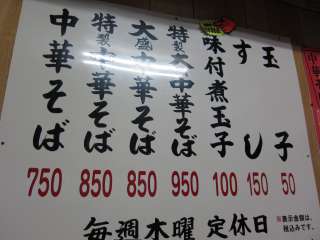 中華そば 750
特製中華そば 850
大盛中華そば 850
特製大中華そば 950
味付煮玉子 100
すし 150
玉子 50
※表示金額は、
税込みです。
毎週木曜 定休日